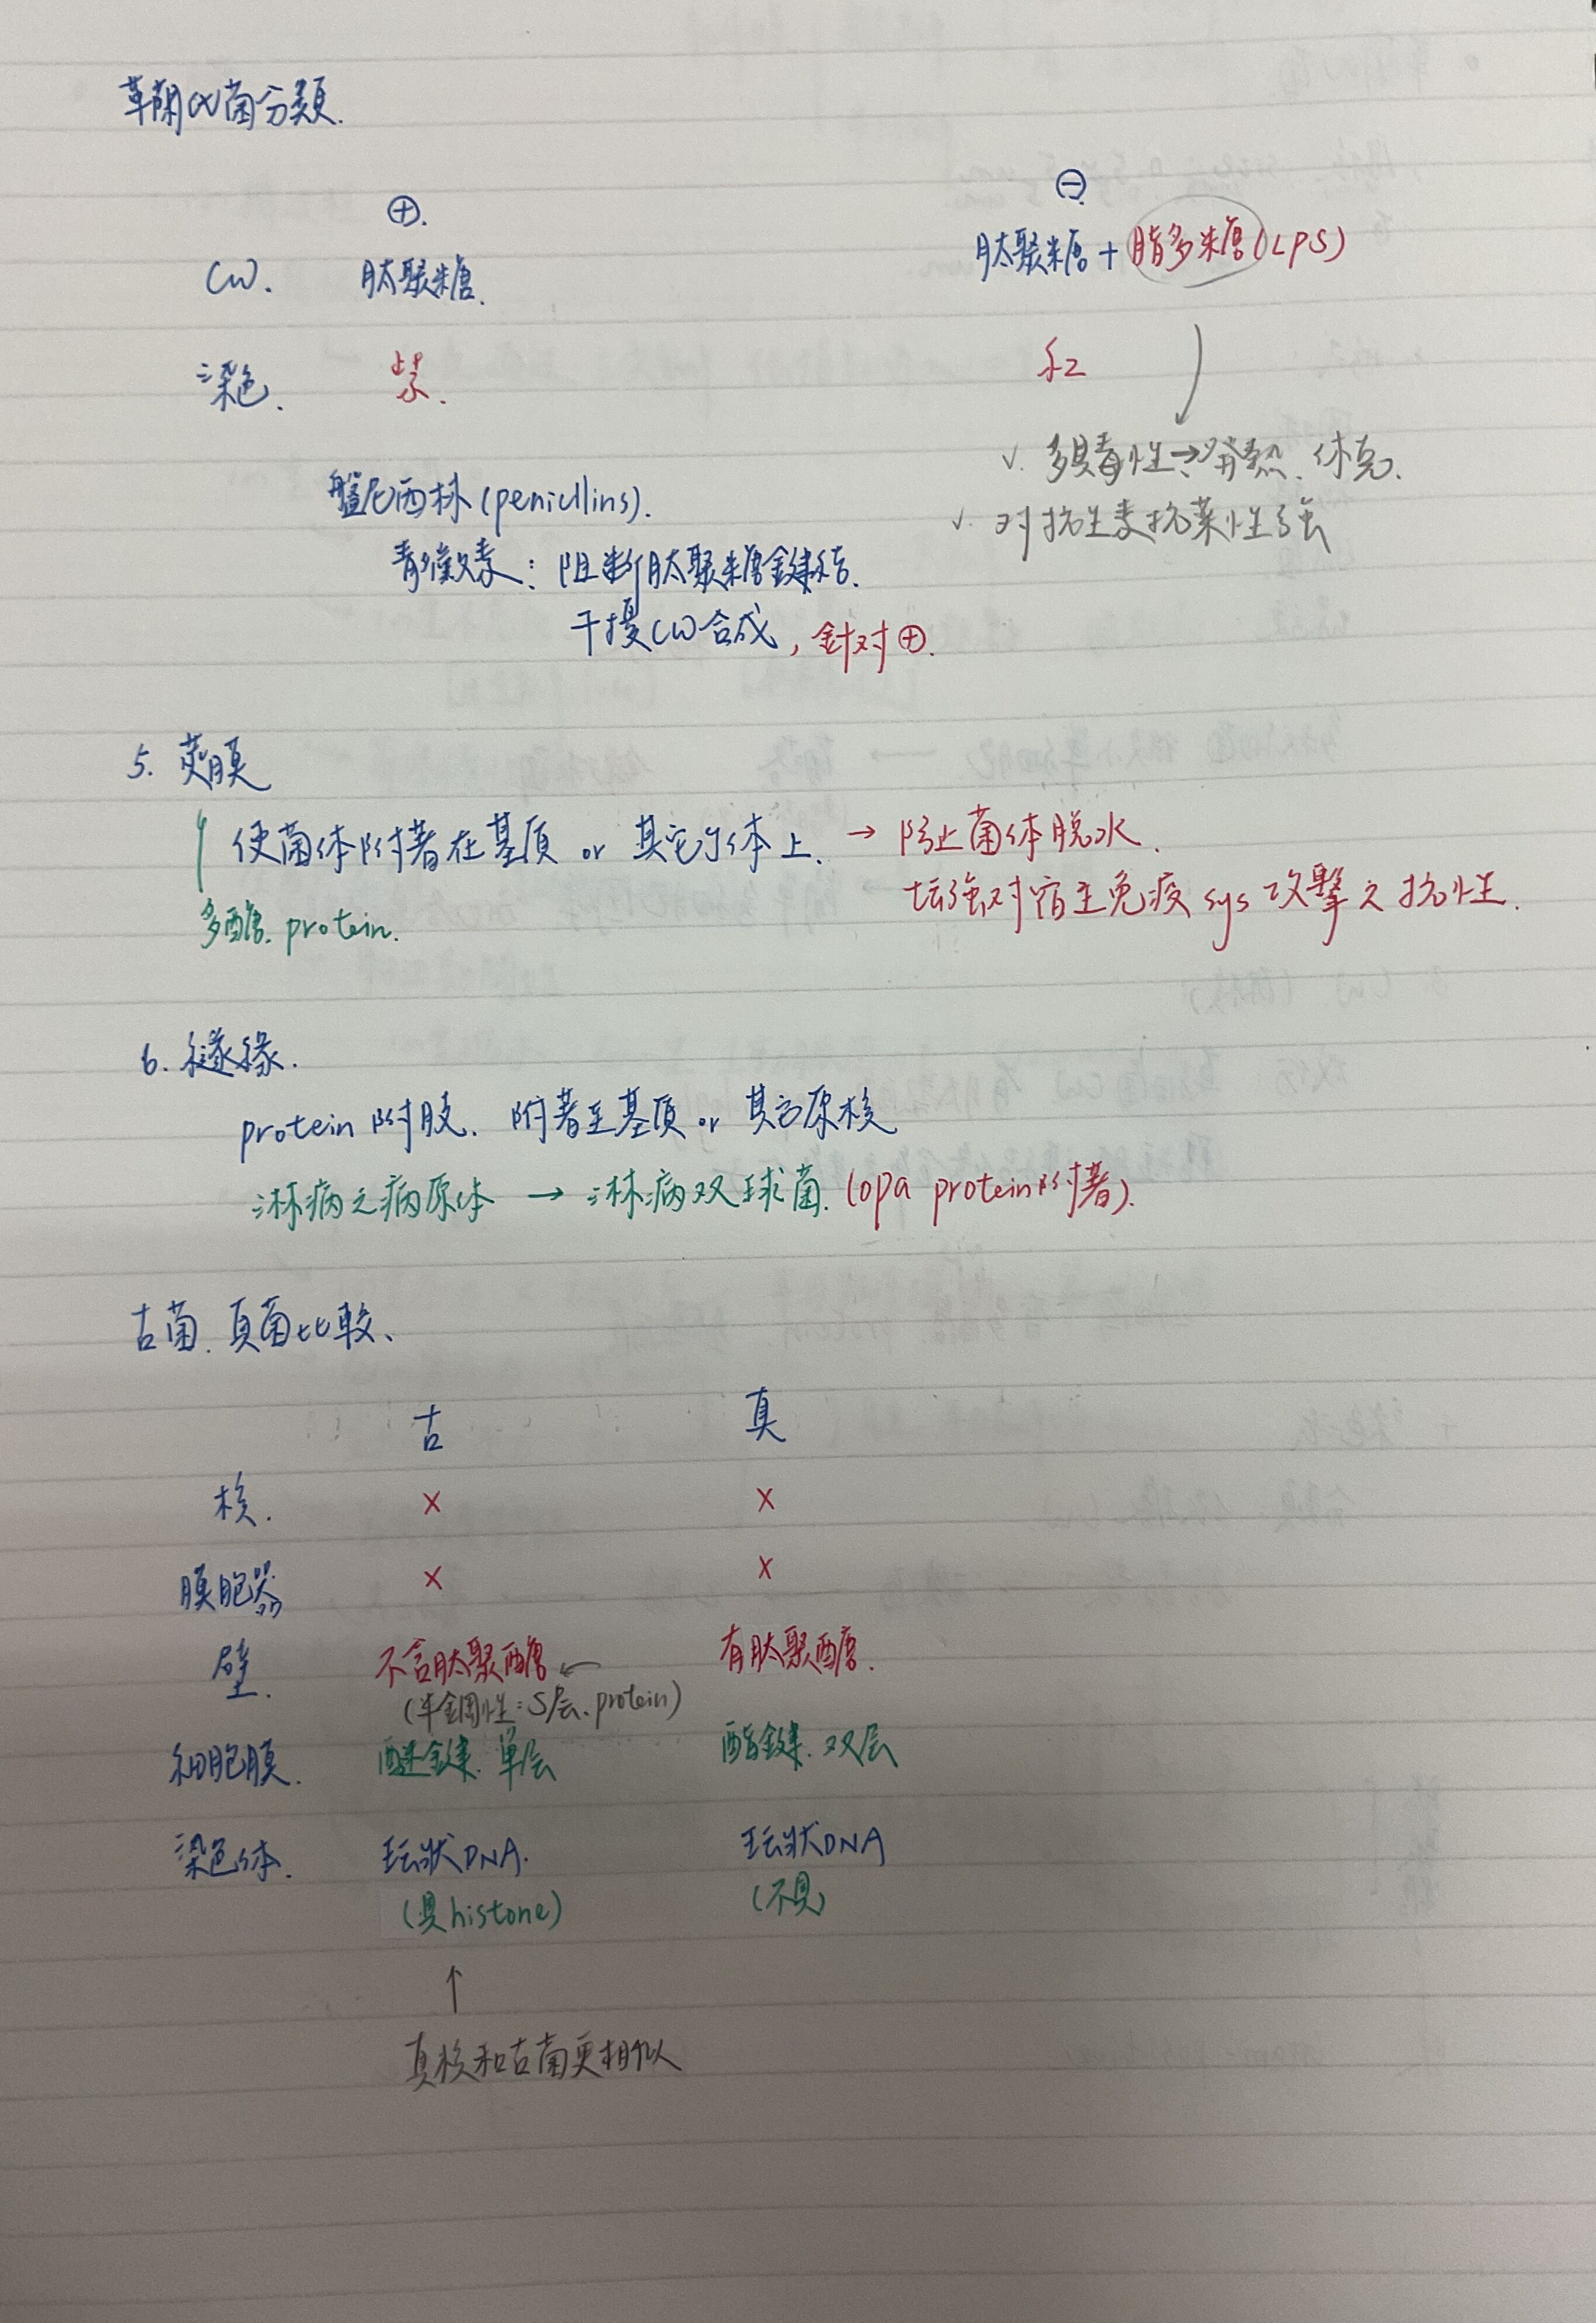 革蘭氏菌分類.
⊕. ⊖
CW. 肽聚糖. 肽聚糖+脂多糖(LPS)
染色. 紫. 紅
✓. 多具毒性→發熱、休克.
盤尼西林(penicillins). ✓. 对抗生素抗藥性強
青黴素: 阻断肽聚糖鍵結.
干擾CW合成, 針对⊕.
5. 莢膜
使菌体附著在基质 or 其它个体上. → 防止菌体脱水.
增強对宿主免疫sys攻擊之抗性.
多醣. protein.
6. 繸緣.
protein附肢. 附著至基质 or 其它原核
淋病之病原体 → 淋病双球菌. (opa protein附著).
古菌.真菌比較、
古 真
核. × ×
膜胞器 × ×
壁. 不含肽聚醣 ← 有肽聚醣.
(半鋼性:S层.protein)
細胞膜. 醚鍵. 單层 酯鍵. 双层
染色体. 环狀DNA. 环狀DNA
(具histone) (不具)
↑
真核和古菌更相似